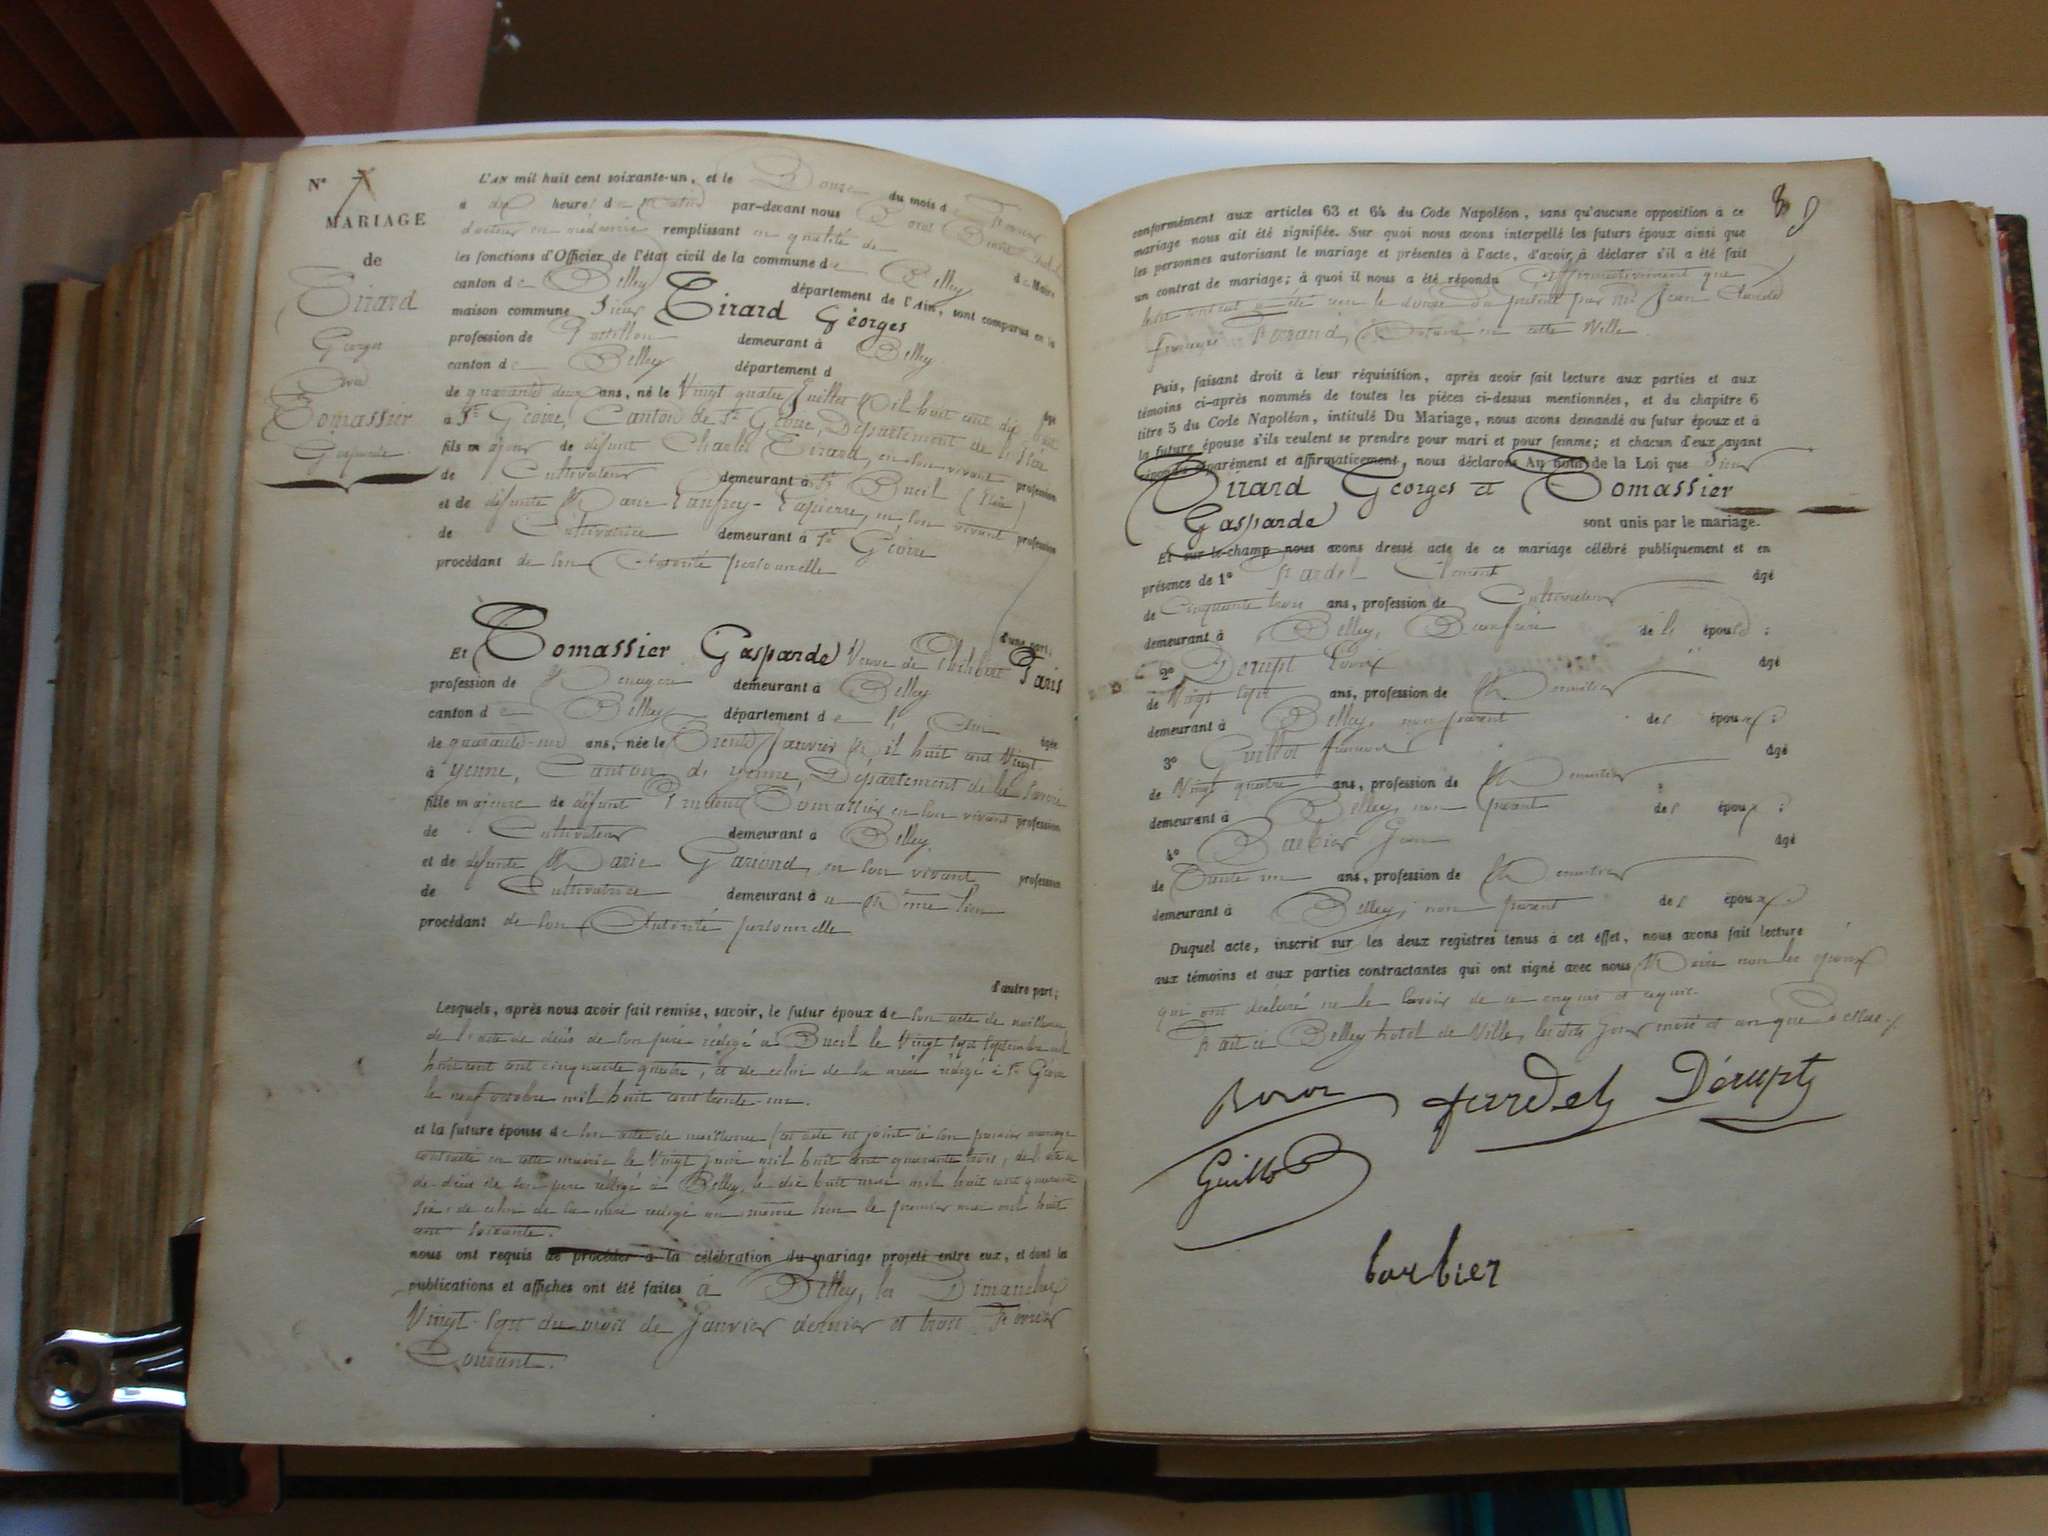 N° 7
MARIAGE
de
Tirard
Georges
Avec
Tomassier
Gasparde
L'AN mil huit cent soixante-un, et le Douze du mois de Février
à dix heures du Matin par-devant nous
docteur en médecine remplissant en qualité de
les fonctions d'Officier de l'état civil de la commune de Belley de Maire
canton de Belley département de l'Ain, sont comparus en la
maison commune Sieur Tirard Georges
profession de Postillon demeurant à Belley
canton de Belley département d âgé
de quarante deux ans, né le Vingt quatre Juillet Mil huit cent dix huit
à St Geoire, Canton de St Geoire, Département de l'Isère
fils majeur de défunt Charles Tirard, en son vivant profession
de Cultivateur demeurant à St Bueil (Isère)
et de défunte Marie en son vivant profession
de Cultivatrice demeurant à St Geoire
procédant de son Autorité personnelle
d'une part;
Et Tomassier Gasparde Veuve de Philibert Paris
profession de Ménagère demeurant à Belley
canton de Belley département de l'Ain âgée
de quarante-un ans, née le Trente Janvier Mil huit cent Vingt
à Yenne, Canton de Yenne, Département de la Savoie
fille majeure de défunt Prudent Tomassier en son vivant profession
de Cultivateur demeurant à Belley
et de défunte Marie en son vivant profession
de Cultivatrice demeurant à u Même lieu
procédant de son Autorité personnelle
d'autre part;
Lesquels, après nous avoir fait remise, savoir, le futur époux de son acte de naissance,
de l'acte de décès de son père rédigé à Bueil le Vingt sept Septembre mil
huit cent cinquante quatre, et de celui de sa mère rédigé à St Geoire
le neuf octobre mil huit cent trente-un.
et la future épouse de son acte de naissance (cet acte est joint à son premier mariage
contracté en cette mairie le Vingt juin mil huit cent quarante trois, de l'acte
de décès de son père rédigé à Belley le dix huit mil huit cent quarante
six, de celui de sa mère rédigé au même lieu le premier mai mil huit
cent soixante.
nous ont requis de procéder à la célébration du mariage projeté entre eux, et dont les
publications et affiches ont été faites à Belley, les Dimanches
Vingt-sept du mois de Janvier dernier et trois Février
Courant.
8
conformément aux articles 63 et 64 du Code Napoléon, sans qu'aucune opposition à ce
mariage nous ait été signifiée. Sur quoi nous avons interpellé les futurs époux ainsi que
les personnes autorisant le mariage et présentes à l'acte, d'avoir à déclarer s'il a été fait
un contrat de mariage; à quoi il nous a été répondu Affirmativement que
leur contrat a été reçu le douze du présent par Me Jean Claude
François Ferrand, Notaire en cette Ville.
Puis, faisant droit à leur réquisition, après avoir fait lecture aux parties et aux
témoins ci-après nommés de toutes les pièces ci-dessus mentionnées, et du chapitre 6
titre 5 du Code Napoléon, intitulé Du Mariage, nous avons demandé au futur époux et à
la future épouse s'ils veulent se prendre pour mari et pour femme; et chacun d'eux ayant
répondu séparément et affirmativement, nous déclarons Au nom de la Loi que Sieur
Tirard Georges et Tomassier
Gasparde sont unis par le mariage.
Et sur-le-champ nous avons dressé acte de ce mariage célébré publiquement et en
présence de 1° Fardel Clément âgé
de Cinquante trois ans, profession de Cultivateur
demeurant à Belley, Beaufrère de l' épouse;
2° Derupt Louis âgé
de Vingt sept ans, profession de Menuisier
demeurant à Belley, non parent des époux;
3° Guillot âgé
de Vingt quatre ans, profession de Menuisier
demeurant à Belley, non parent des époux;
4° Barbier Jean âgé
de Trente un ans, profession de Menuisier
demeurant à Belley, non parent des époux.
Duquel acte, inscrit sur les deux registres tenus à cet effet, nous avons fait lecture
aux témoins et aux parties contractantes qui ont signé avec nous Maire non les époux
qui ont déclaré ne le savoir de ce enquis et requis.
Fait à Belley hôtel de Ville, les dits jour mois et an que dessus.
fardel Dérupt
Guillot
barbier